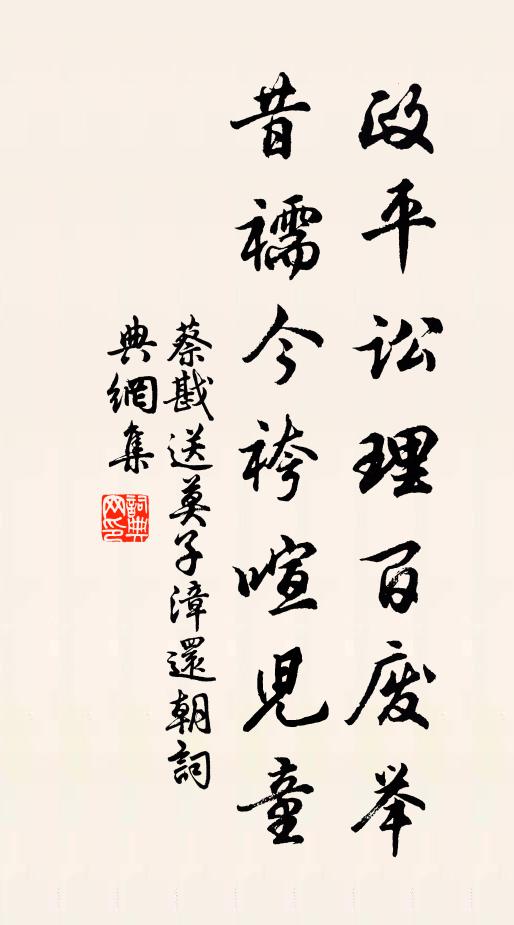 政平讼理百废举
昔襦今袴喧児童
蔡戡送莫子漳還朝詞
典網集
詞典网印